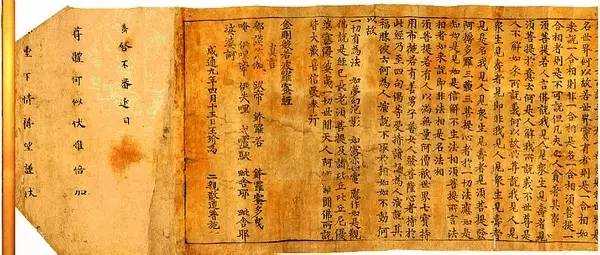 名世界何以故若世界實有者則是一合相如
來說一合相則非一合相是名一合相須菩提一
合相者則是不可說但凡夫之人貪著其事
須菩提若人言佛說我見人見眾生見壽者見
須菩提於意云何是人解我所說義不世尊是
人不解如來所說義何以故世尊說我見人見
眾生見壽者見即非我見人見眾生見壽者
見是名我見人見眾生見壽者見須菩提發
阿耨多羅三藐三菩提心者於一切法應如是
知如是見如是信解不生法相須菩提所言法
相者如來說即非法相是名法相
須菩提若有人以滿無量阿僧祇世界七寶持
用布施若有善男子善女人發菩薩心者持於
此經乃至四句偈等受持讀誦為人演說其
福勝彼云何為人演說不取於相如如不動何
以故
一切有為法 如夢幻泡影 如露亦如電 應作如是觀
佛說是經已長老須菩提及諸比丘比丘尼優
婆塞優婆夷一切世間天人阿修羅聞佛所說
皆大歡喜信受奉行
金剛般若波羅蜜經
真言
那謨薄伽 跋帝 鉢羅若 鉢羅蜜多曳
唵 伊利底 伊失哩 戍盧馱 毗舍耶 毗舍耶
莎婆訶
咸通九年四月十五日王玠為 二親敬造普施
不審近日
尊體何似伏惟倍加
重下情禱望謹狀